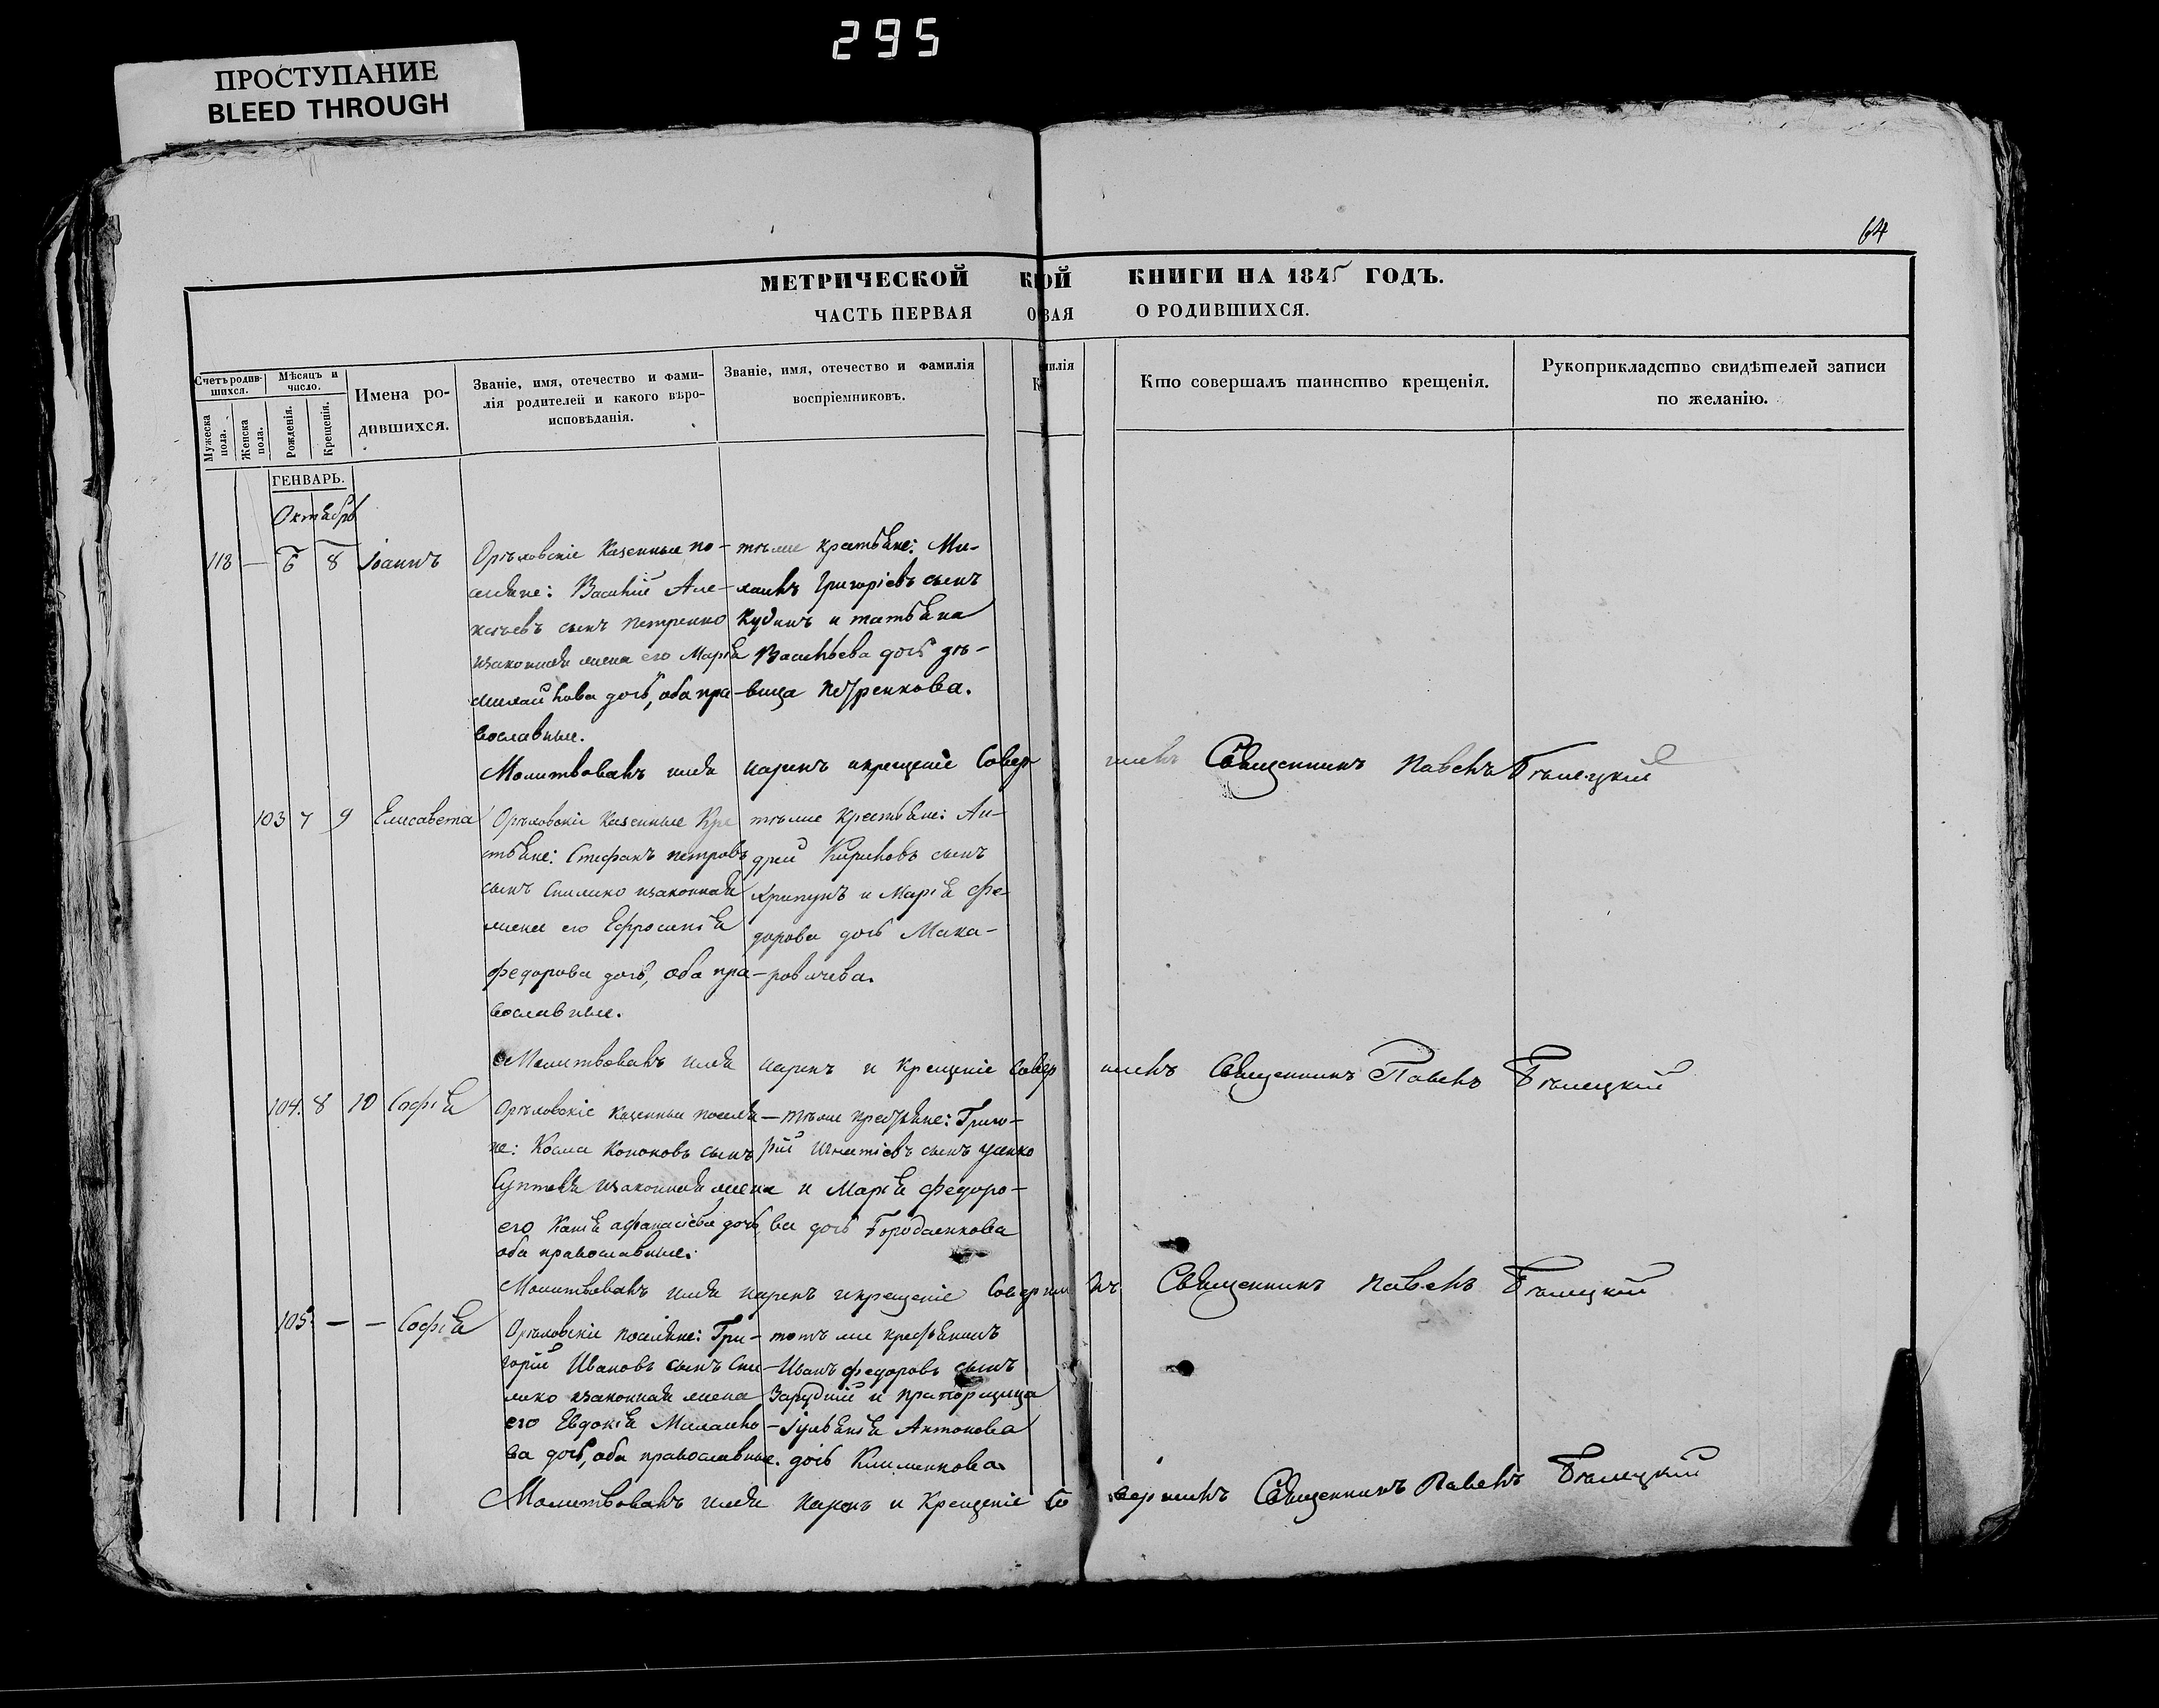 295
ПРОСТУПАНИЕ
BLEED THROUGH
64
МЕТРИЧЕСКОЙ КОЙ КНИГИ НА 1845 ГОДЪ.
ЧАСТЬ ПЕРВАЯ ОВАЯ О РОДИВШИХСЯ.
Счетъ родившихся.
Мужеска пола.
Женска пола.
Мѣсяцъ и число.
Рожденія.
Крещенія.
Имена родившихся.
Званіе, имя, отечество и фамилія родителей и какого вѣроисповѣданія.
Званіе, имя, отечество и фамилія воспріемниковъ.
Кто совершалъ таинство крещенія.
Рукоприкладство свидѣтелей записи по желанію.
ГЕНВАРЬ.
Октябрь
118 — 6 8 Іоаннъ
Орѣловскіе казенные по-
селяне: Василій Але-
ксѣевъ сынъ Петренко
изаконная жена его Марія
дочь, оба пра-
вославные.
тѣже крестьяне: Ми-
хаилъ Григоріевъ сынъ
Кудинъ и татьяна
Васильева дочь дѣ-
вица Петренкова.
Молитвовалъ имя нарекъ икрещеніе Совершилъ Священникъ Павелъ Бѣлецкій
103 7 9 Елисавета
Орѣловскіе казенные Кре
стьяне: Стефанъ петровъ
сынъ изаконная
жена его Ефросинія
федорова дочь, оба пра-
вославные.
тѣже крестьяне: Ан-
дрей Кириловъ сынъ
Хрипунъ и Марія Фе-
дорова дочь Мака-
ровичева.
Молитвовалъ имя нарекъ и крещеніе совершилъ Священникъ Павелъ Бѣлецкій
104. 8 10 Софія
Орѣловскіе казенные поселя-
не: Косма Кононовъ сынъ
изаконная жена
его афанасіева дочь,
оба православные.
тѣже крестьяне: Григо-
рій Игнатіевъ сынъ
и Марія федоро-
ва дочь
Молитвовалъ имя нарекъ икрещеніе Совершилъ Священникъ Павелъ Бѣлецкій
105. — — Софія
Орѣловскіе поселяне: Гри-
горій Ивановъ сынъ
изаконная жена
его Евдокія Михайло-
ва дочь, оба православные.
тотъ же крестьянинъ
Иванъ федоровъ сынъ
Зарудній и прапорщица
Іуліанія Антонова
дочь Клименкова.
Молитвовалъ имя нарекъ и Крещеніе Совершилъ Священникъ Павелъ Бѣлецкій